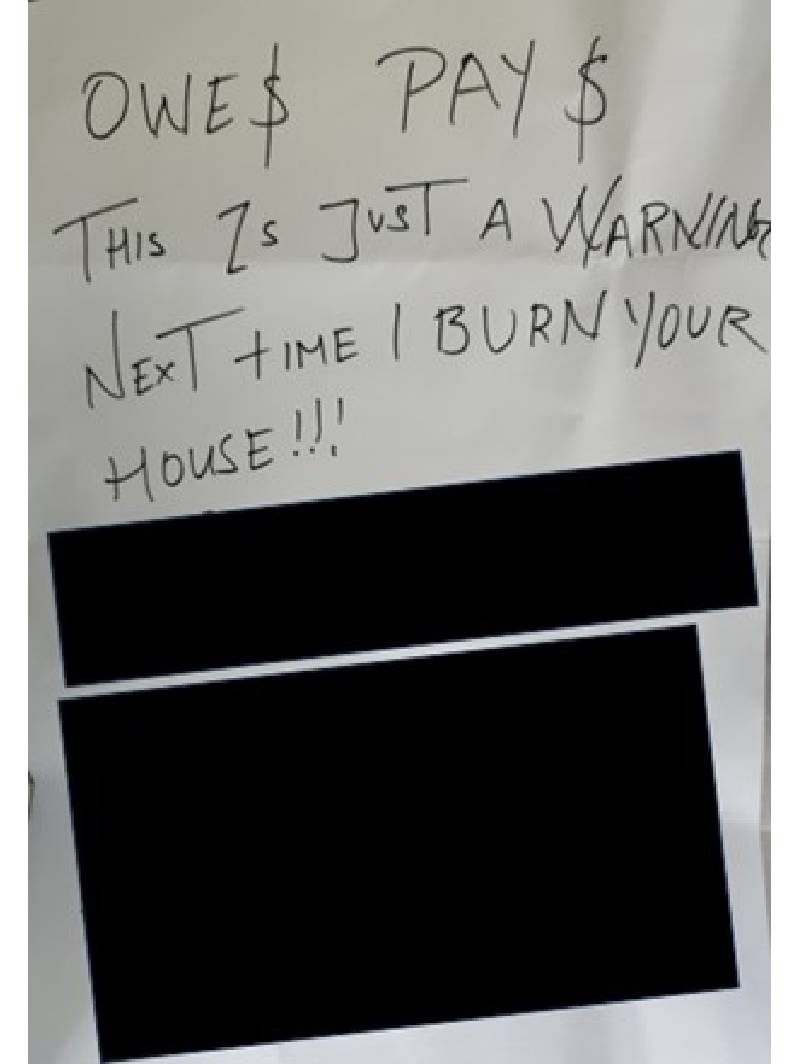 OWE$ PAY $
THIS IS JUST A WARNING
NEXT TIME I BURN YOUR
HOUSE!!!